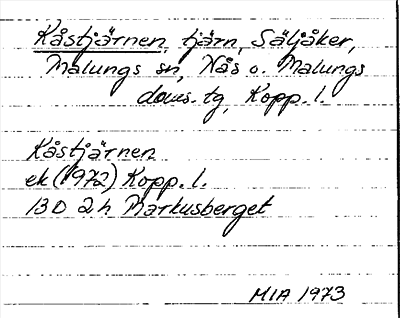 Kåstjärnen, tjärn, Säljåker,
Malungs sn, Nås o. Malungs
doms. tg, Kopp. l.
Kåstjärnen
ek (1972) Kopp. l.
13 D 2 h Markusberget
MIA 1973